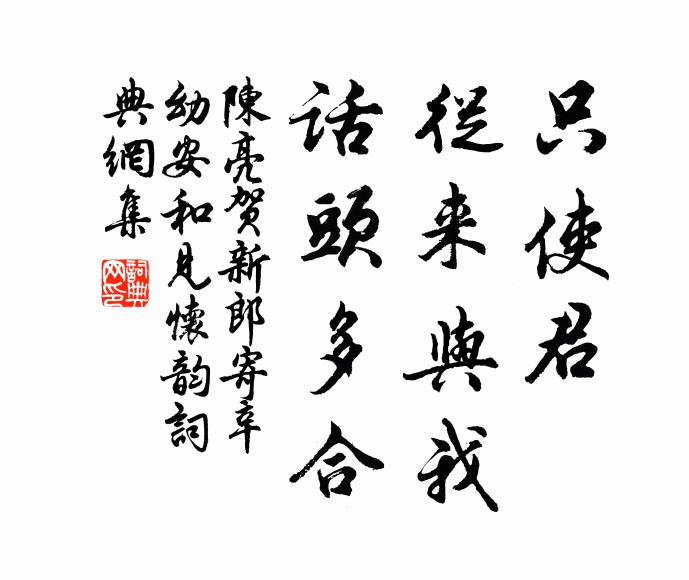 只使君
從来與我
話頭多合
陳亮賀新郎寄辛
幼安和見懷韵詞
典網集
詞典
网印